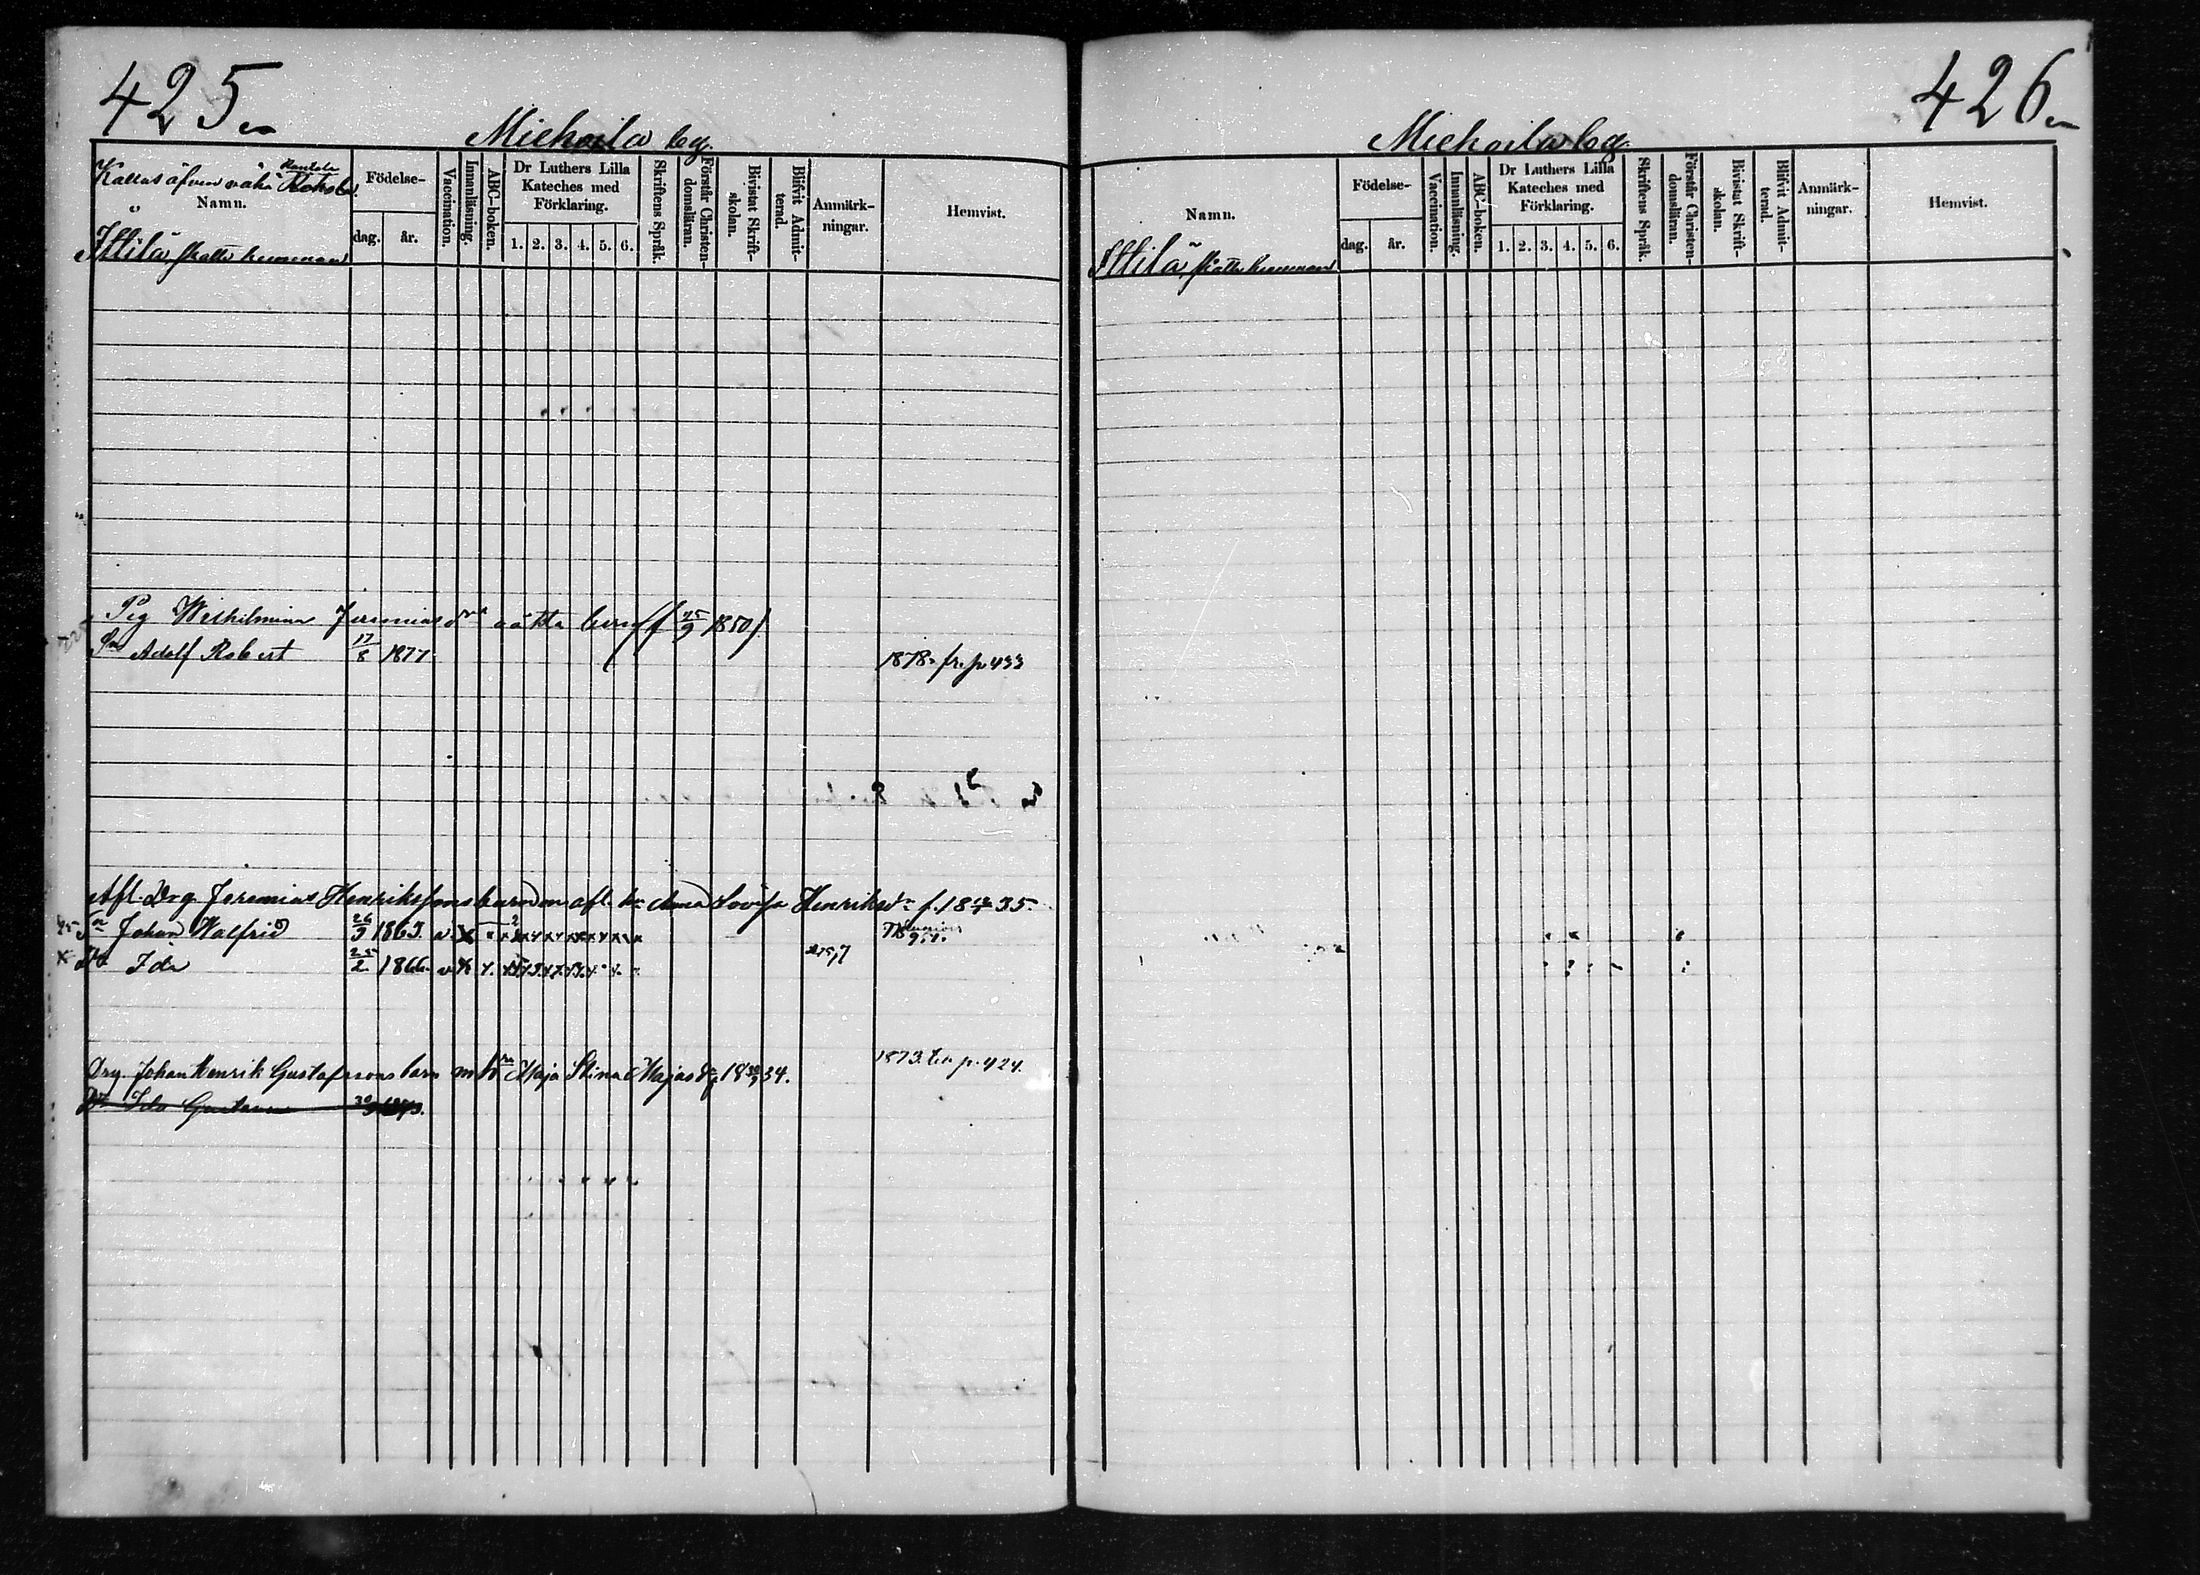 425
Michoila by.
Kallas äfven
Namn.
Födelse-
dag.
år.
Vaccination.
Innanläsning.
ABC-boken.
Dr Luthers Lilla
Kateches med
Förklaring.
1. 2. 3. 4. 5. 6.
Skriftens Språk.
Förstår Christen-
domsläran.
Bivistat Skrift-
skolan.
Blifvit Admit-
terad.
Anmärk-
ningar.
Hemvist.
Pig Wilhelmina Jeremiasdr oäkta barn (f 25/9 1850)
Sn Adolf Robert 17/8 1877 1878 fr. p 433
Afl. Drg. Jeremias Henrikssons barn m afl. h. Anna Lovisa Henriksdr f. 18 35
Sn Johan Walfrid 26/9 1863. v.
Dr Ida 25/2 1866 v
Drg. Johan Henrik Gustafssons barn m h Maja Stina Majasdr 18 34. 1873. fr. p. 424.
Dr Ida Gustava
426
Michoila by.
Namn.
Födelse-
dag.
år.
Vaccination.
Innanläsning.
ABC-boken.
Dr Luthers Lilla
Kateches med
Förklaring.
1. 2. 3. 4. 5. 6.
Skriftens Språk.
Förstår Christen-
domsläran.
Bivistat Skrift-
skolan.
Blifvit Admit-
terad.
Anmärk-
ningar.
Hemvist.